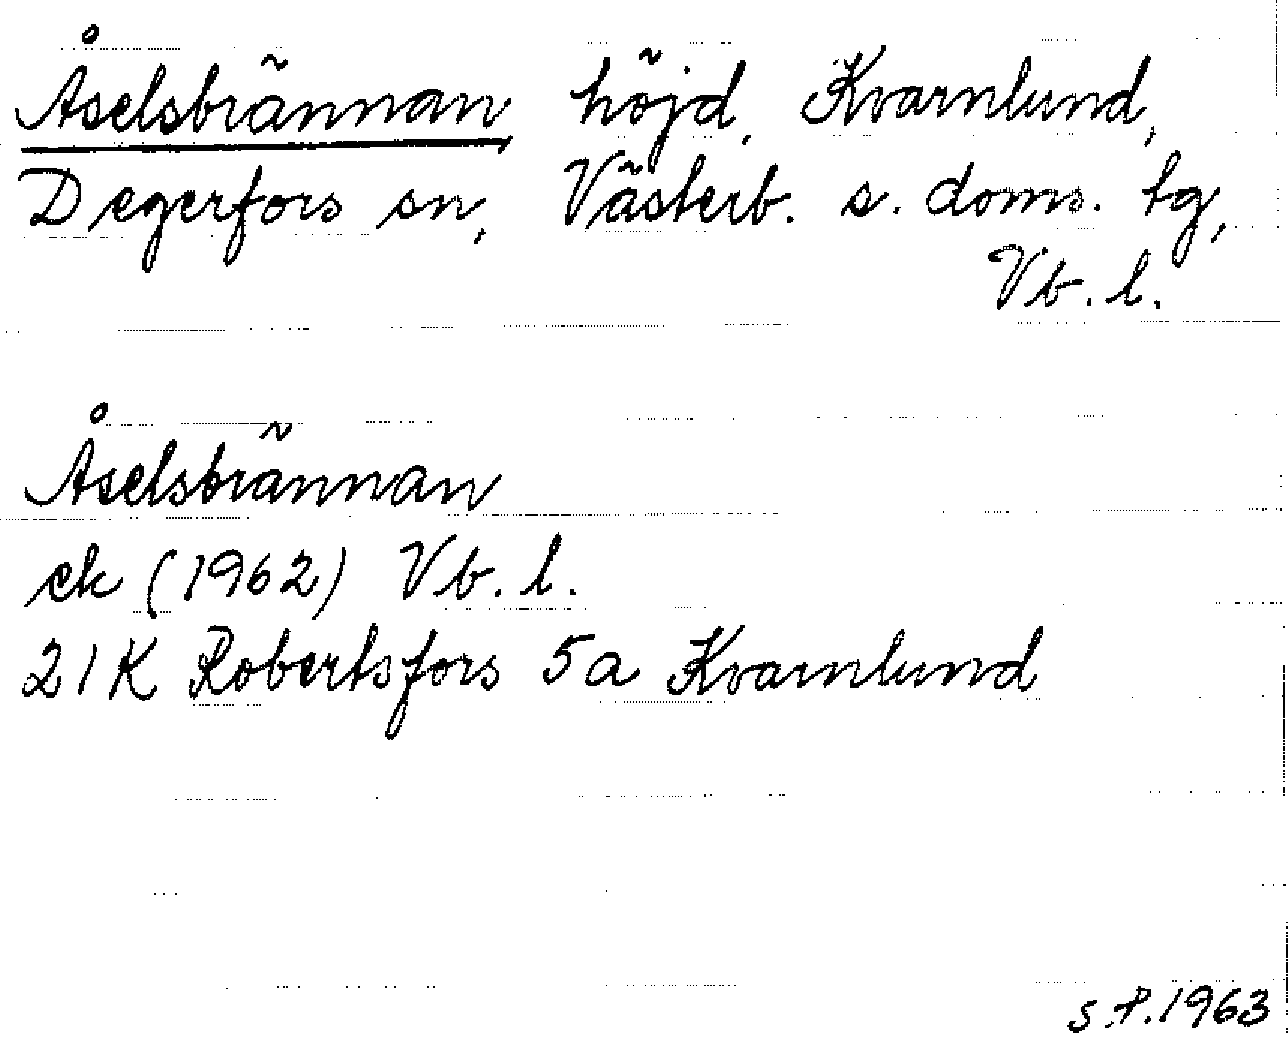 Åselsbrännan, höjd, Kvarnlund,
Degerfors sn, Västerb. s. doms. tg,
Vb. l.
Åselsbrännan
ek (1962) Vb. l.
21K Robertsfors 5a Kvarnlund
S.P. 1963